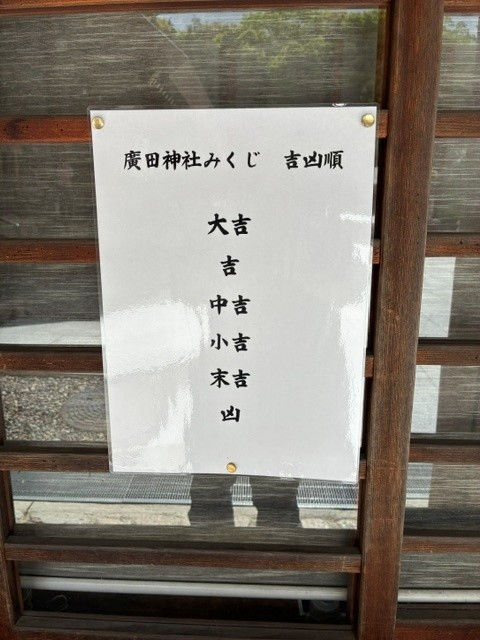 廣田神社みくじ　吉凶順
大吉
吉
中吉
小吉
末吉
凶